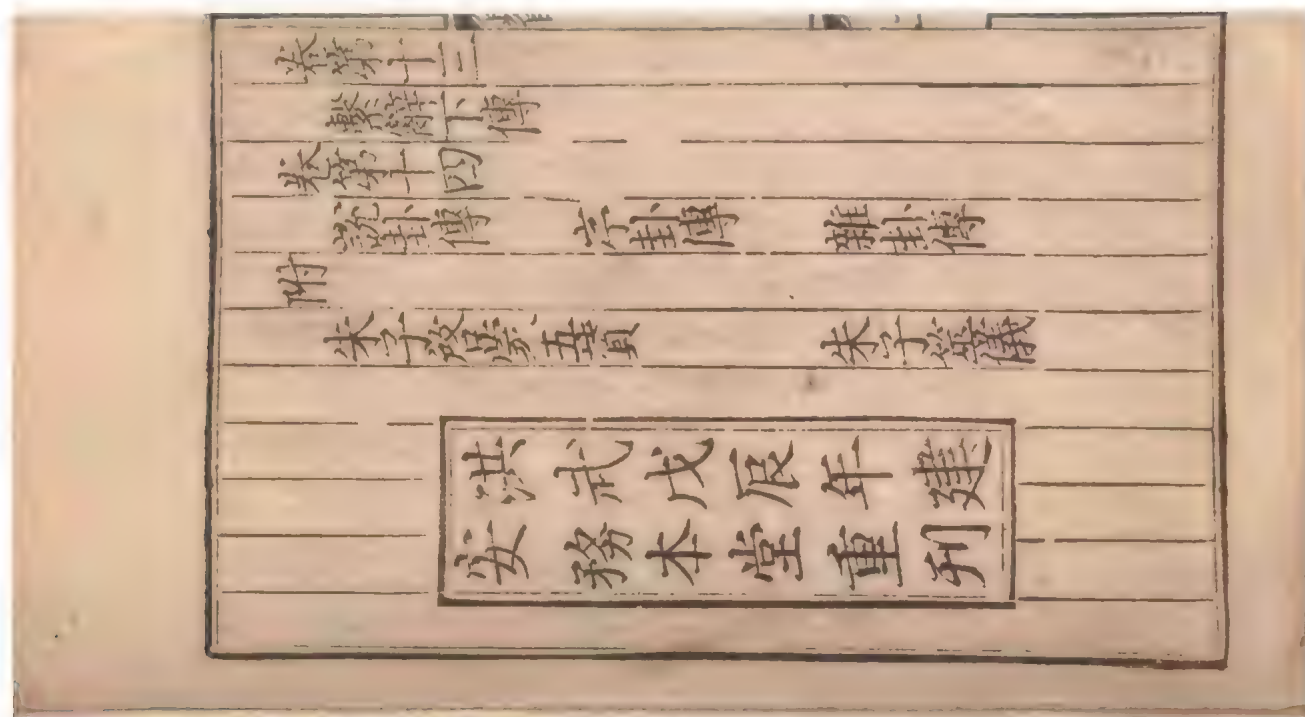 卷第十三
繫辭下傳
卷第十四
說卦傳 序卦傳 雜卦傳
附
朱子啓蒙五賛 朱子筮儀
洪武戊辰年建
安務本堂重刊